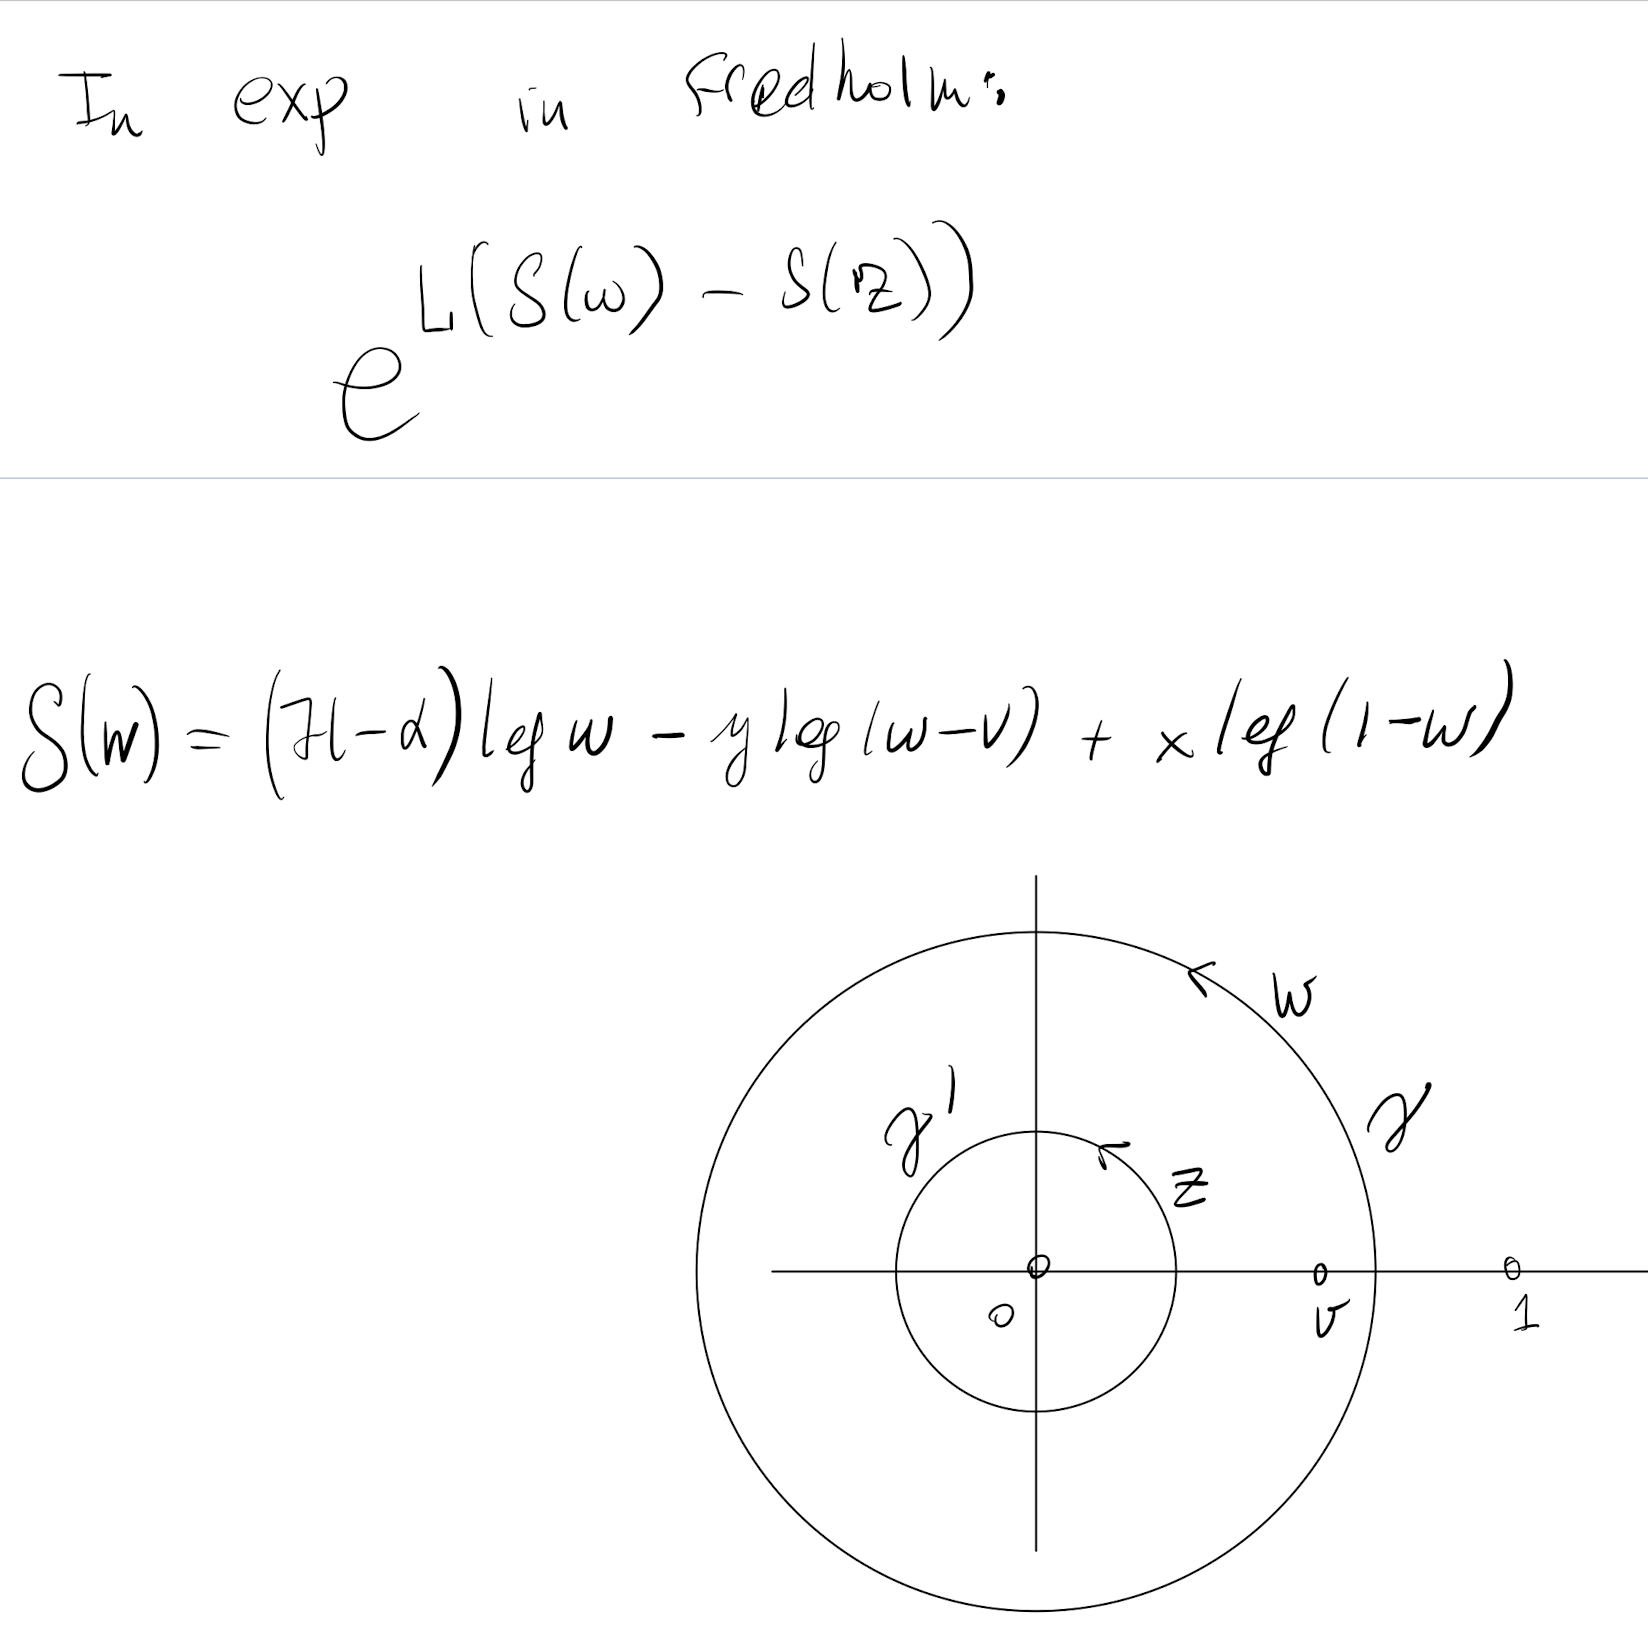 In exp in Fredholm:
e^{L(S(w) - S(z))}
S(w) = (H - α) log w - y log (w - v) + x log (1 - w)
w
γ'
γ
z
0
v
1